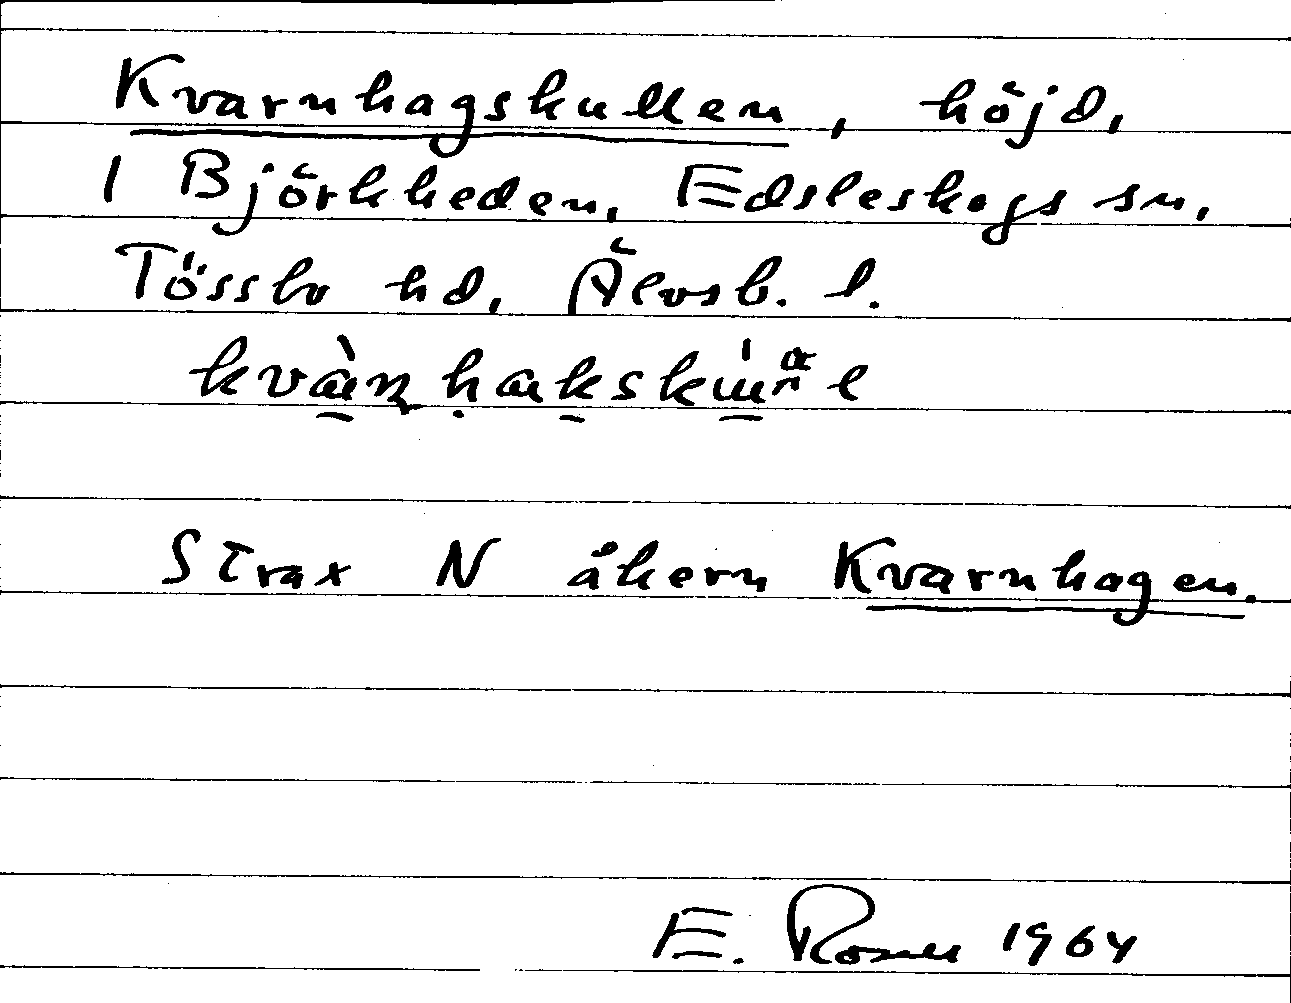 Kvarnhagskullen, höjd,
I Björkheden, Edsleskogs sn,
Tössbo hd, Älvsb. l.
Strax N åkern Kvarnhagen.
E. 1964